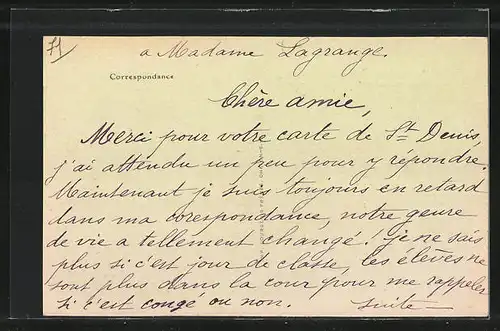 71
a Madame Lagrange.
Correspondance
Chère amie,
Merci pour votre carte de St Denis,
j'ai attendu un peu pour y répondre.
Maintenant je suis toujours en retard
dans ma corespondance, notre genre
de vie a tellement changé! je ne sais
plus si c'est jour de classe, les élèves ne
sont plus dans la cour pour me rappeler
si c'est congé ou non. suite —